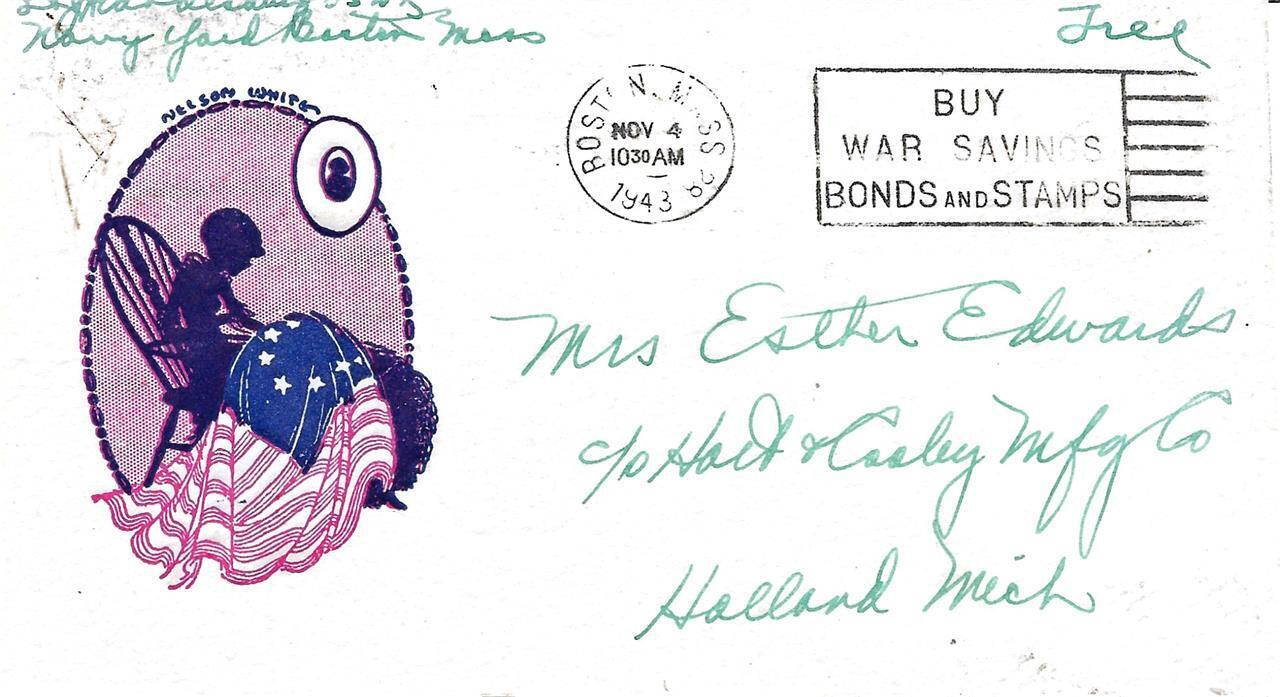 Navy Yard Boston Mass
Free
NELSON WHITE
BOSTON, MASS
NOV 4
1030 AM
1943
BUY
WAR SAVINGS
BONDS AND STAMPS
Mrs Esther Edwards
c/o Hart & Cooley Mfg Co
Holland Mich